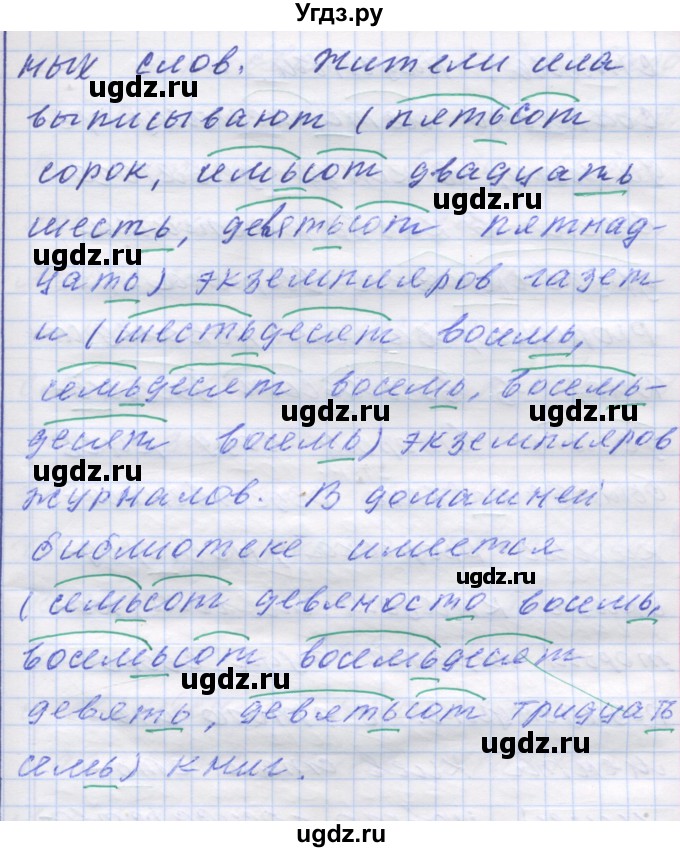 Угдз.ру
ных слов. Жители села
выписывают (пятьсот
сорок, семьсот двадцать
шесть, девятьсот пятнад-
цать) экземпляров газет
и (шестьдесят восемь,
семьдесят восемь, восемь-
десят восемь) экземпляров
журналов. В домашней
библиотеке имеется
(семьсот девяносто восемь,
восемьсот восемьдесят
девять, девятьсот тридцать
семь) книг.
ugdz.ru
ugdz.ru
ugdz.ru
ugdz.ru
ugdz.ru
ugdz.ru
ugdz.ru
ugdz.ru
ugdz.ru
ugdz.ru
ugdz.ru
ugdz.ru